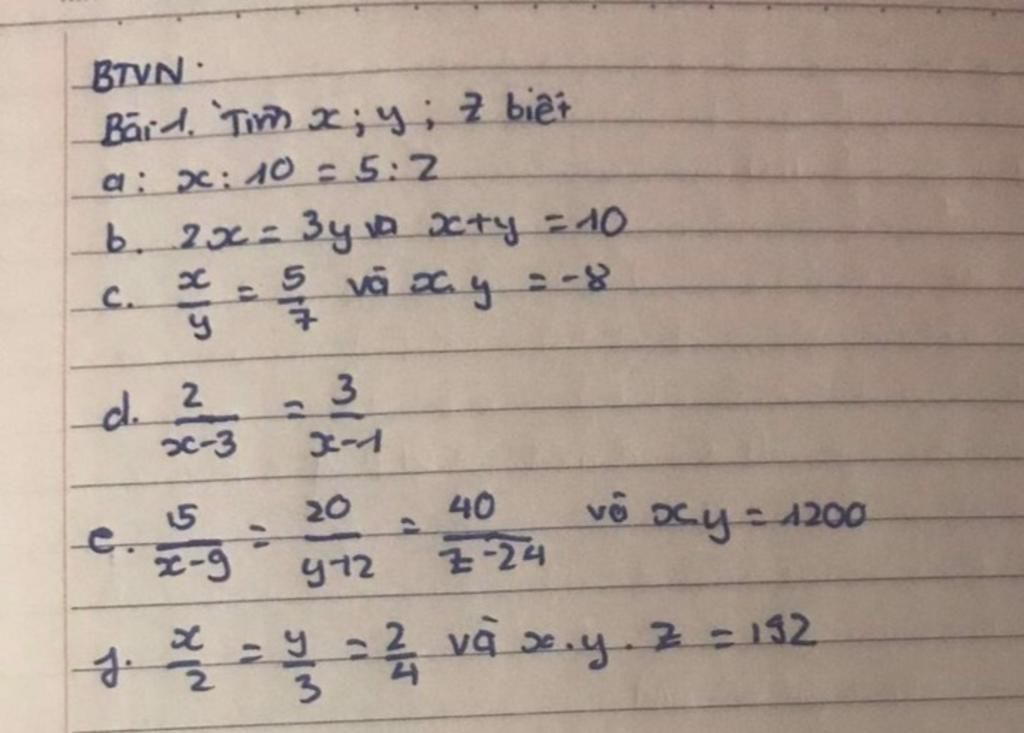 BTVN.
Bài 1. Tìm x; y; z biết
a: x : 10 = 5 : 2
b. 2x = 3y và x+y = 10
c. x/y = 5/7 và x. y = -8
d. 2/(x-3) = 3/(x-1)
e. 15/(x-9) = 20/(y-12) = 40/(z-24) và x.y = 1200
f. x/2 = y/3 = z/4 và x.y.z = 192